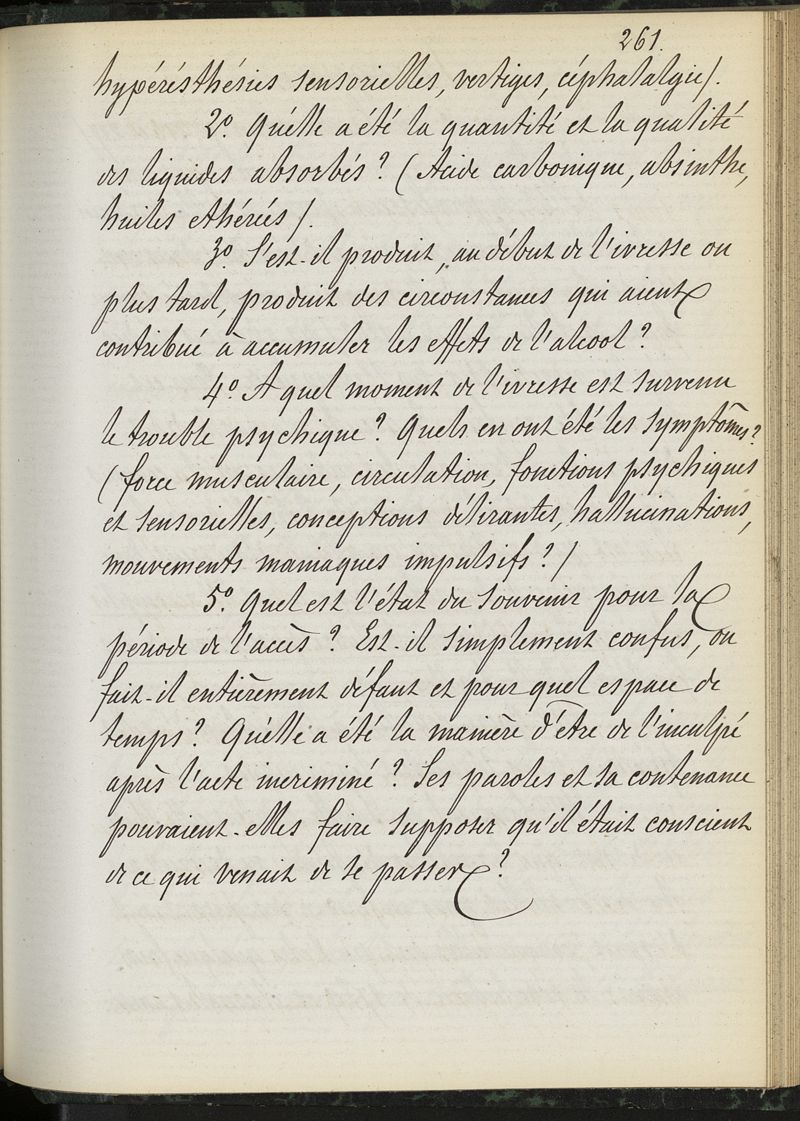 261.
hypérésthésies sensorielles, vertiges, céphalalgie).
2º. Qu'elle a été la quantité et la qualité
des liquides absorbés ? (Acide carbonique, absinthe,
huiles ethérées).
3º. S'est-il produit, au début de l'ivresse ou
plus tard, produit des circonstances qui aient
contribué à accumuler les effets de l'alcool ?
4º. A quel moment de l'ivresse est survenu
le trouble psychique ? Quels en ont été les symptômes ?
(force musculaire, circulation, fonctions psychiques
et sensorielles, conceptions délirantes, hallucinations,
mouvements maniaques impulsifs ?)
5º. Quel est l'état du souvenir pour la
période de l'accès ? Est-il simplement confus, ou
fait-il entièrement défaut et pour quel espace de
temps ? Qu'elle a été la manière d'être de l'inculpé
après l'acte incriminé ? Ses paroles et sa contenance
pouvaient-elles faire supposer qu'il était conscient
de ce qui venait de se passer ?